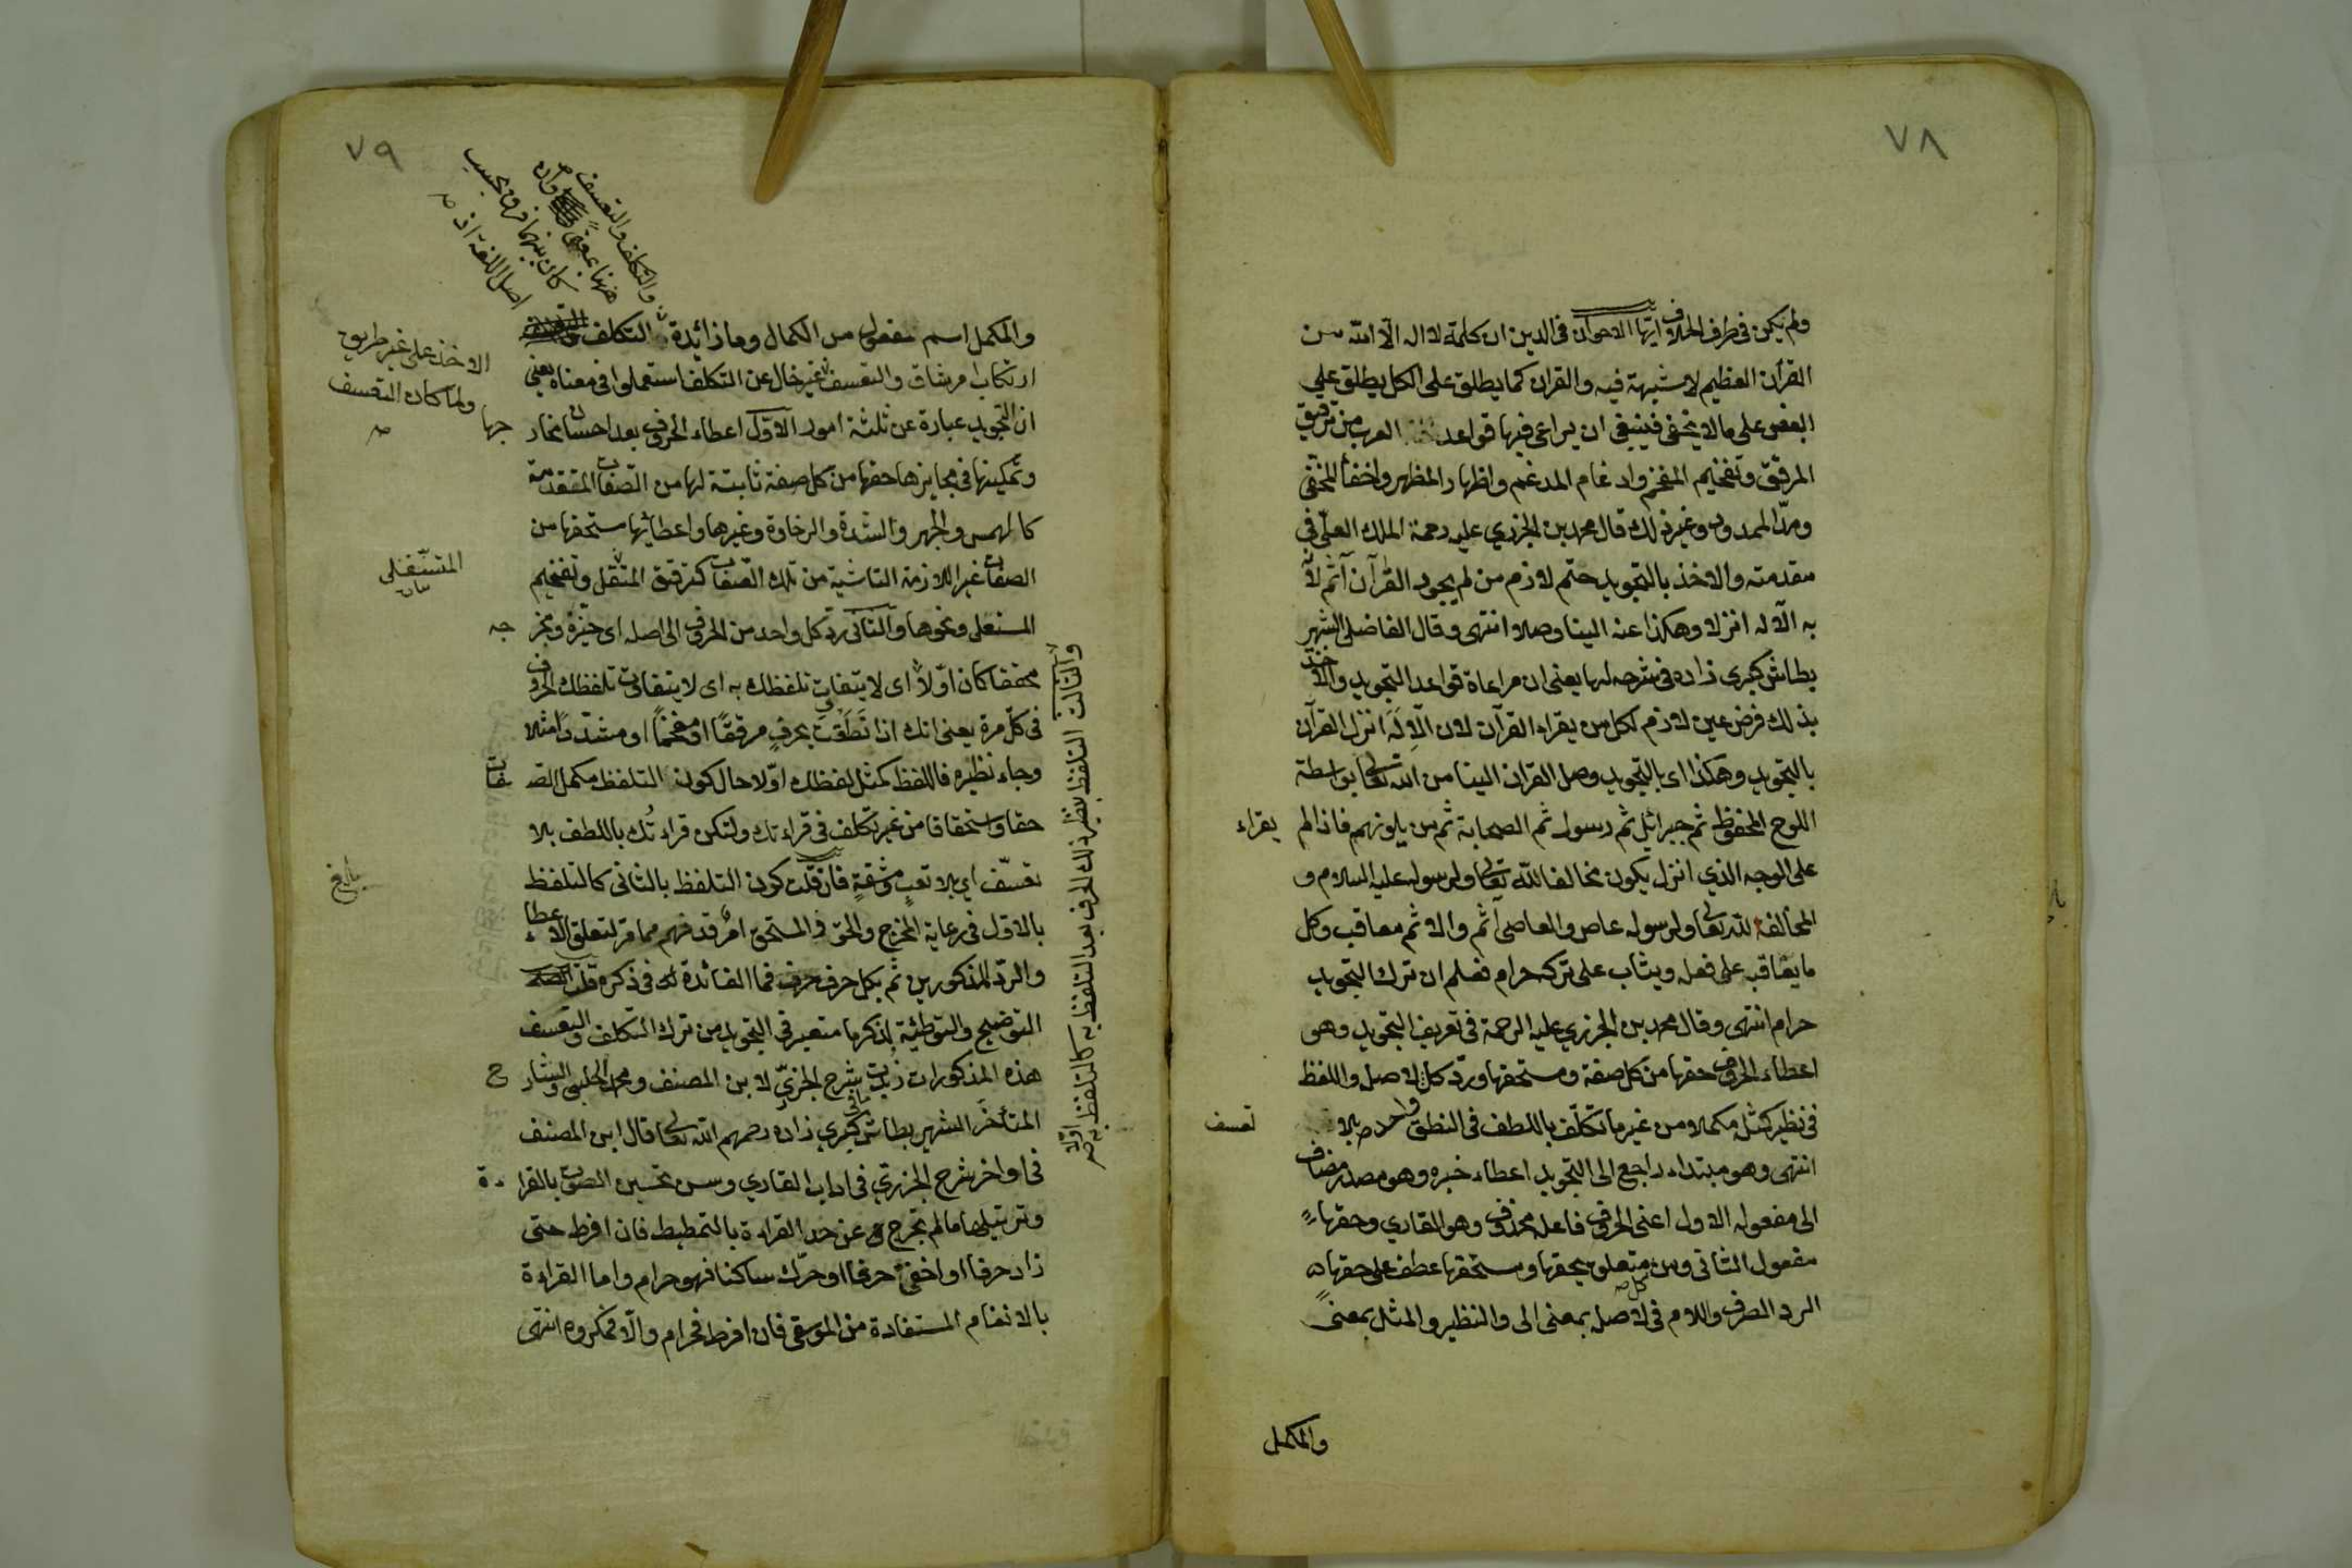 ٧٨
ولم يكن في طرف الخلاف ايها الاخوان في الدين ان كلمة لا اله الا الله من
القرآن العظيم لا شبهة فيه والقران كما يطلق على الكل يطلق على
البعض على ما لا يخفى فينبغي ان يراعى فيها قواعد العرب من ترقيق
المرقق وتفخيم المفخم وادغام المدغم واظهار المظهر واخفاء المخفي
ومد الممدود وغير ذلك قال محمد بن الجزري عليه رحمة الملك العلي في
مقدمته والاخذ بالتجويد حتم لازم من لم يجود القرآن آثم لا
به الاله انزلا وهكذا عنه الينا وصلا انتهى وقال الفاضل الشهير
بطاش كبرى زاده في شرحه لها يعني ان مراعاة قواعد التجويد والاخذ
بذلك فرض عين لازم لكل من يقراء القرآن لان الاله انزل القرآن
بالتجويد وهكذا اى بالتجويد وصل القران الينا من الله تعالى بواسطة
اللوح المحفوظ ثم جبرائيل ثم رسوله ثم الصحابة ثم من يلونهم فاذا لم يقراء
على الوجه الذي انزل يكون مخالفا لله تعالى ولرسوله عليه السلام و
المخالفة لله تعالى ولرسوله عاص والعاصى آثم والاثم معاقب وكل
ما يعاقب على فعله ويثاب على تركه حرام فعلم ان ترك التجويد
حرام انتهى وقال محمد بن الجزري عليه الرحمة في تعريف التجويد وهو
اعطاء الحروف حقها من كل صفة ومستحقها ورد كل لاصله واللفظ
في نظيره كمثله مكملا من غير ما تكلف باللطف في النطق بلا تعسف
انتهى وهو مبتداء راجع الى التجويد اعطاء خبره وهو مصدر مضاف
الى مفعوله الاول اعنى الحروف فاعله محذوف وهو القاري وحقها
مفعول الثاني ومن متعلق بحقها ومستحقها عطف على حقها
الرد الصرف واللام في لاصله بمعنى الى والنظير والمثل بمعنى
والمكمل
٧٩
والتكلف والتعسف
ههنا بمعنى وان
كان بينهما فرق بحسب
اصل اللغة اذ
والمكمل اسم مفعول من الكمال وما زائدة التكلف
الاخذ على غير طريق
ولما كان التعسف
ارتكاب امر شاق والتعسف غير خال عن التكلف استعملوا في معناه يعني
ان التجويد عبارة عن ثلثة امور الاول اعطاء الحروف بعد احسان مخارجها
وتمكينها في محايزها حقها من كل صفة ثابتة لها من الصفات المتقدمة
كالهمس والجهر والشدة والرخاوة وغيرها واعطائها مستحقها من
الصفات غير اللازمة الناشية من تلك الصفات كترقيق المستفل وتفخيم
المستعلى ونحوها والثانى رد كل واحد من الحروف الى اصله اى حيزه ومخرجه
محققا كان اولا اى لا يتفاوت تلفظك به اى لا يتفاوت تلفظك الحروف
في كل مرة يعنى انك اذا نطقت بحرف مرققا او مفخما او مشددا مثلا
وجاء نظيره فاللفظ كمثل لفظك اولا حال كون التلفظ مكمل الصفات
حقا واستحقاقا من غير تكلف في قراءتك ولتكن قراءتك باللطف بلا
تعسف اي بلا تعب ومشقة فان قلت كون التلفظ بالثانى كالتلفظ
بالاول في رعاية المخرج والحق والمستحق امر قد فهم مما مر لتعلق الاعطاء
والرد المذكورين ثم بكل حرف حرف فما الفائدة في ذكره قلت
التوضيح والتوطئة لذكر ما معتبر في التجويد من ترك التكلف والتعسف
هذه المذكورات زبدة شرح الجزري لابن المصنف ومحمد الحلبي والشارح
المتأخر الشهير بطاش كبري زاده رحمهم الله تعالى قال ابن المصنف
في اواخر شرح الجزري في اداب القاري وسن تحسين الصوت بالقراءة
وترتيلها ما لم تخرج عن حد القراءة بالتمطيط فان افرط حتى
زاد حرفا او اخفى حرفا او حرك ساكنا فهو حرام واما القراءة
بالانغام المستفادة من الموسقى فان افرط فحرام والا فمكروه انتهى
والثالث التلفظ بنظير ذلك الحرف بعد التلفظ به كالتلفظ به اولا